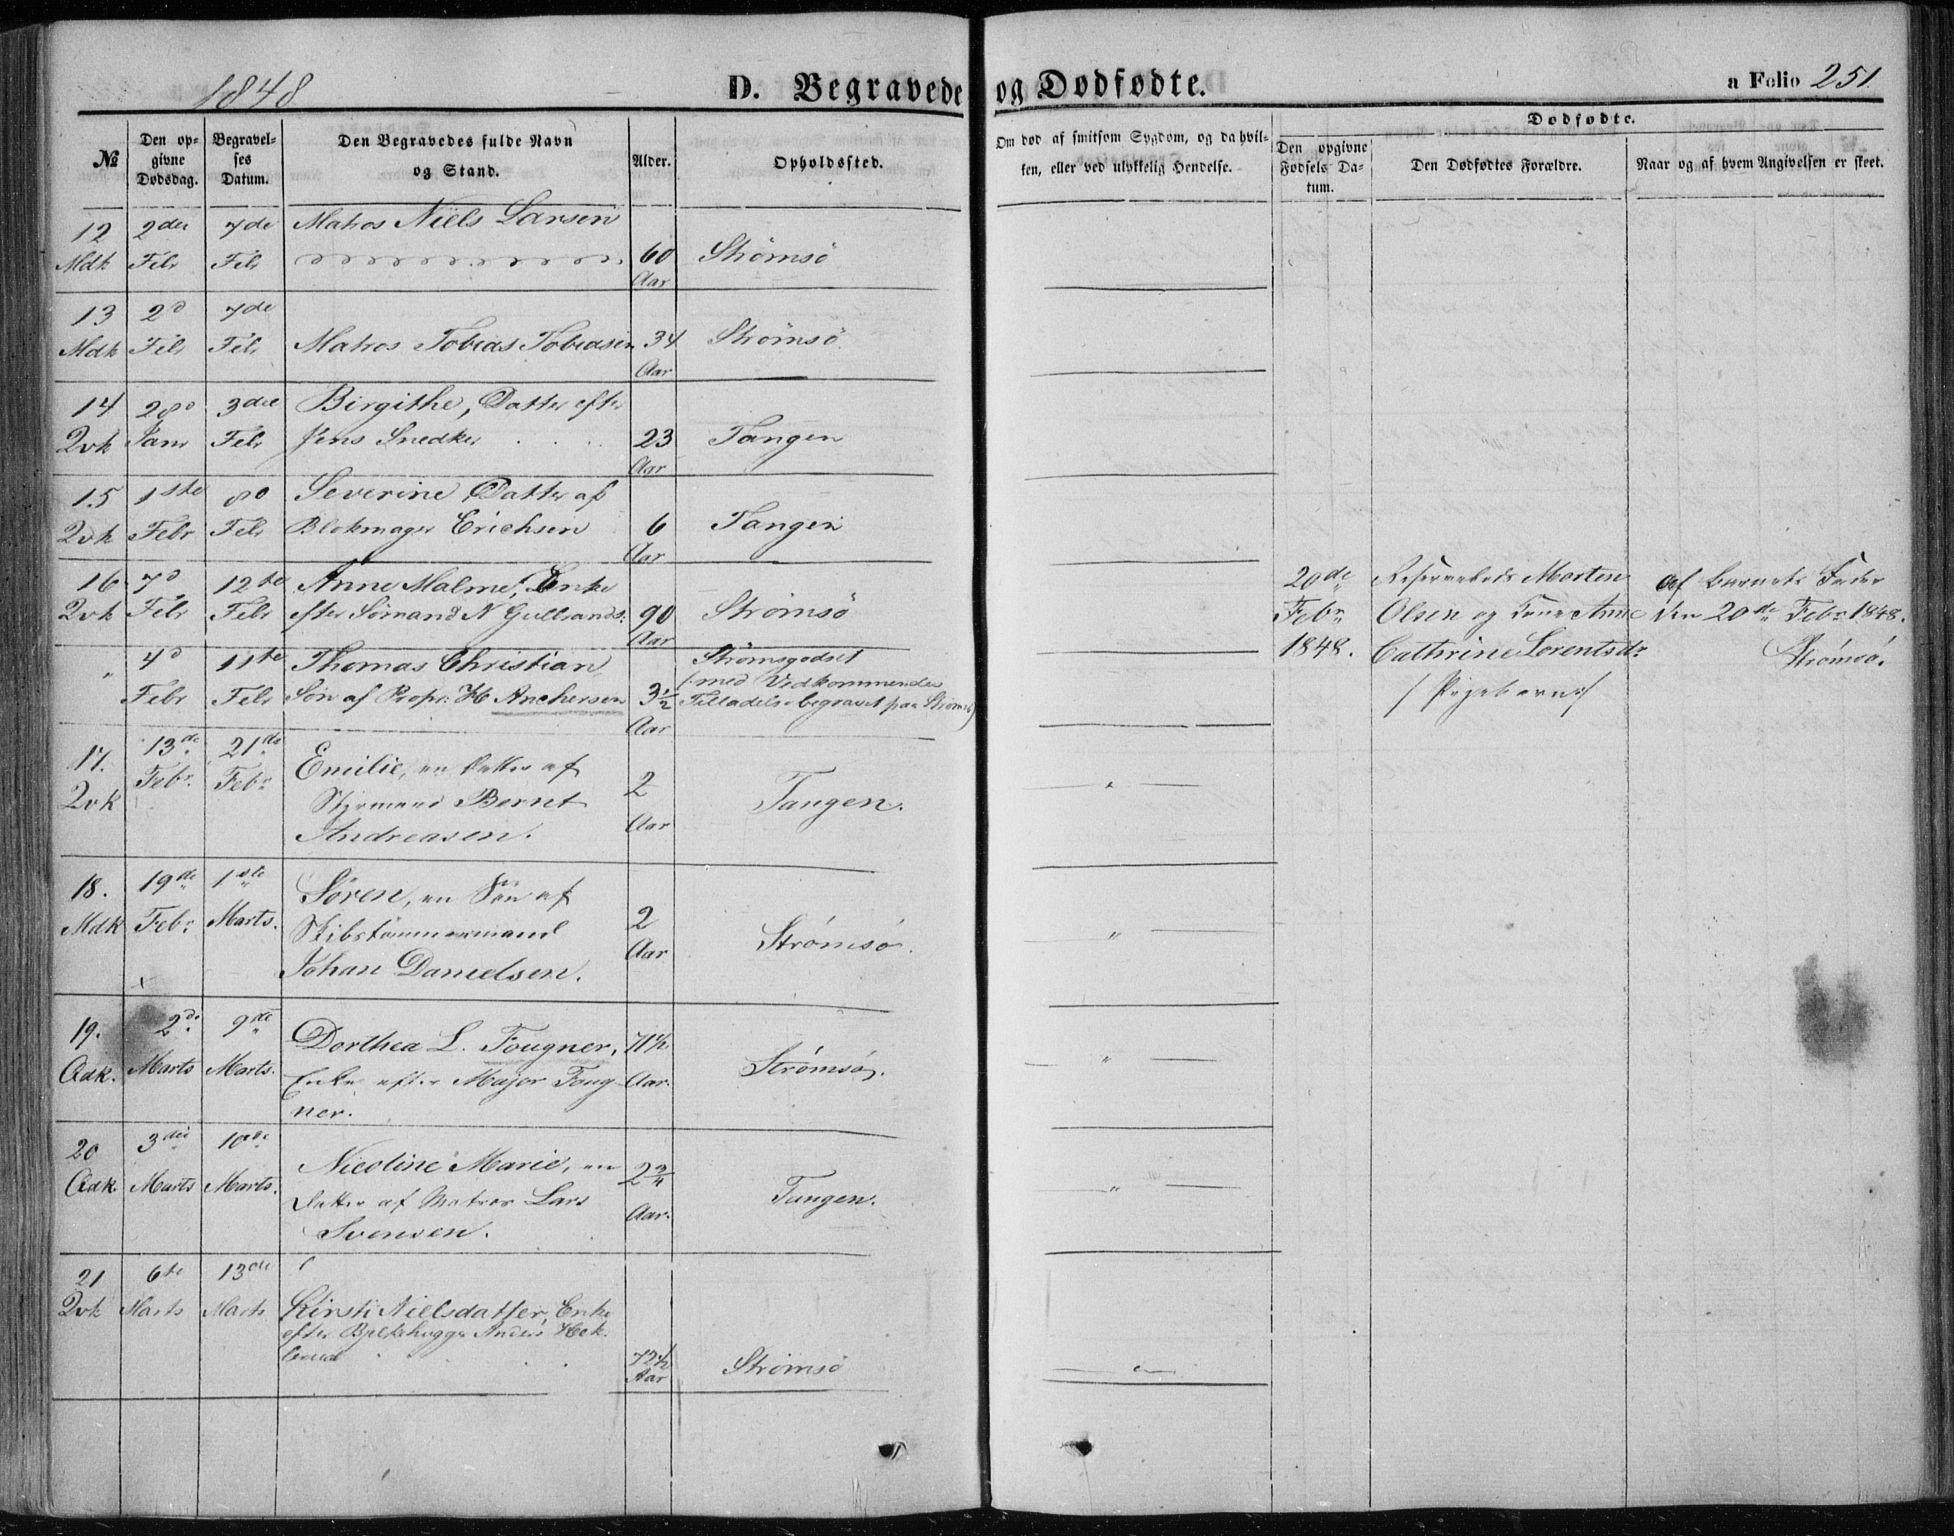 1848
D. Begravede og Dødfødte.
a Folio 251
№
Den opgivne Dødsdag.
Begravelses Datum.
Den Begravedes fulde Navn og Stand.
Alder.
Opholdssted.
Om død af smitsom Sygdom, og da hvilken, eller ved ulykkelig Hendelse.
Dødfødte.
Den opgivne Fødsels Datum.
Den Dødfødtes Forældre.
Naar og af hvem Angivelsen er skeet.
12 2den 7de Matros Niels Larsen
Mdk Febr Febr 60 Strømsö
Aar
13 2d 7de
Mdk Febr Febr Matros Tobias Tobiasen 34 Strømsö
Aar
14 28d 3die Birgithe, Datter efter
Qvk Janr Febr Jens Snedker 23 Tangen
Aar
15 1ste 8d Severine, Datter af
Qvk Febr Febr Blokmager Erichsen 6 Tangen
Aar
16 7d 12te Anne Malme, Enke
Qvk Febr Febr efter Sømand N Gulbrands: 90 Strømsö
Aar
" 4d 11te Thomas Christian, Strømsgodset
Febr Febr Søn af Propr: H Anchersen 3½ (med Vedkommendes
Aar Tilladelse begravet paa Strømsö)
17. 13de 21de
Qvk Febr. Febr. Emilie, en Datter af 2 Tangen. "
Styrmand Bernt Aar
Andreasen.
18. 19de 1ste Sören, en Sön af
Mdk Febr Marts. Skibstømmermand 2 Strømsö. "
Johan Danielsen. Aar
19. 2de 9de Dorthea L. Fougner, 71½
Qdk. Marts Marts. Enke efter Major Foug- Aar. Strømsö. "
ner.
20 3die 10de Nicoline Marie, en 2¾
Qdk Marts Marts. Datter af Matros Lars Aar. Tangen. "
Svensen.
21 6te 13de
Qvk Marts Marts Kirsti Nielsdatter, Enke
efter Bjelkehugger Anders Hok-
lered 72½ Strømsö "
Aar
20de Febr 1848.
Morten
Olsen og Kone Anne
Cathrine Lorentsdr
/Pigebarn/
af Barnets Fader
den 20de Febr 1848.
Strømsö.